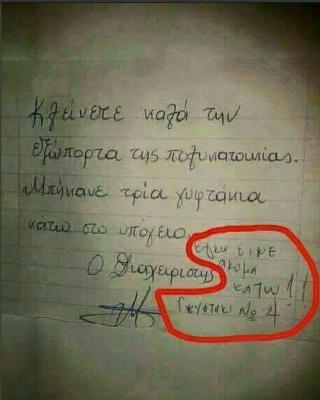 Κλείνετε καλά την
εξώπορτα της πολυκατοικίας.
Μπήκανε τρία γυφτάκια
κάτω στο υπόγειο.
Ο Διαχειριστής
ΕΙΝΕ
ακομα
κατω!!
Γκυφτακι Νο 4